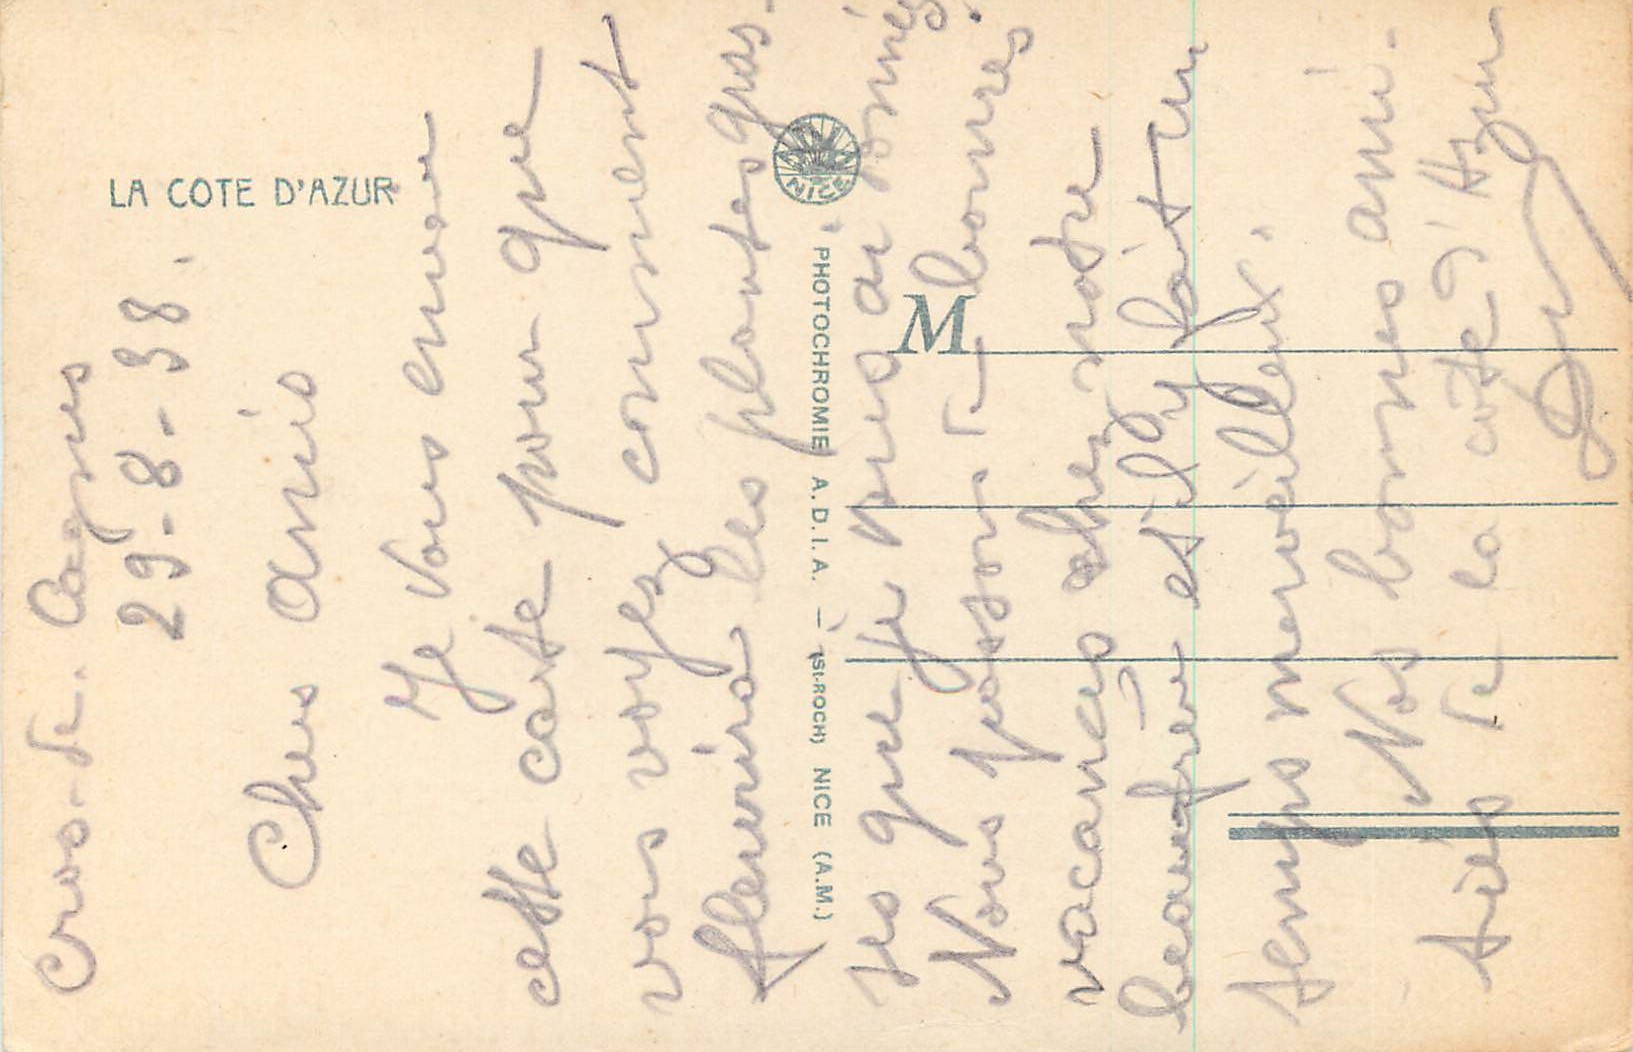 LA COTE D'AZUR
NICE
PHOTOCHROMIE A.D.I.A. — (St-ROCH) NICE (A.M.)
M
Cros-de-Cagnes
29-8-38.
Chers Amis
Je vous envoie
cette carte pour que
vous voyez comment
fleurira les plantes gras-
ses que je vous ai donnés.
Nous passons de bonnes
vacances chez notre
beaufrère et il y fait un
temps merveilleux.
Nos bonnes ami-
tiés de la côte d'Azur